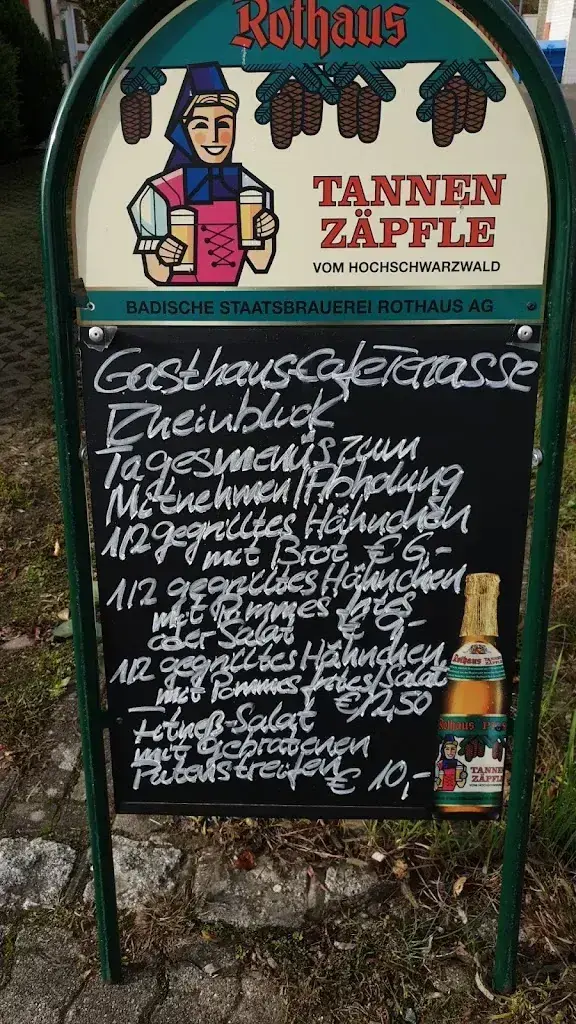 Rothaus
TANNEN
ZÄPFLE
VOM HOCHSCHWARZWALD
BADISCHE STAATSBRAUEREI ROTHAUS AG
Gasthaus-CafeTerrasse
Rheinblick
Tagesmenüs zum
Mitnehmen/Abholung
1/2 gegrilltes Hähnchen
mit Brot € 6,-
1/2 gegrilltes Hähnchen
mit Pommes frites
oder Salat € 9,-
1/2 gegrilltes Hähnchen
mit Pommes frites/Salat
€ 12,50
Fitneß-Salat
mit gebratenen
Putenstreifen
€ 10,-
Rothaus
Rothaus
TANNEN
ZÄPFLE